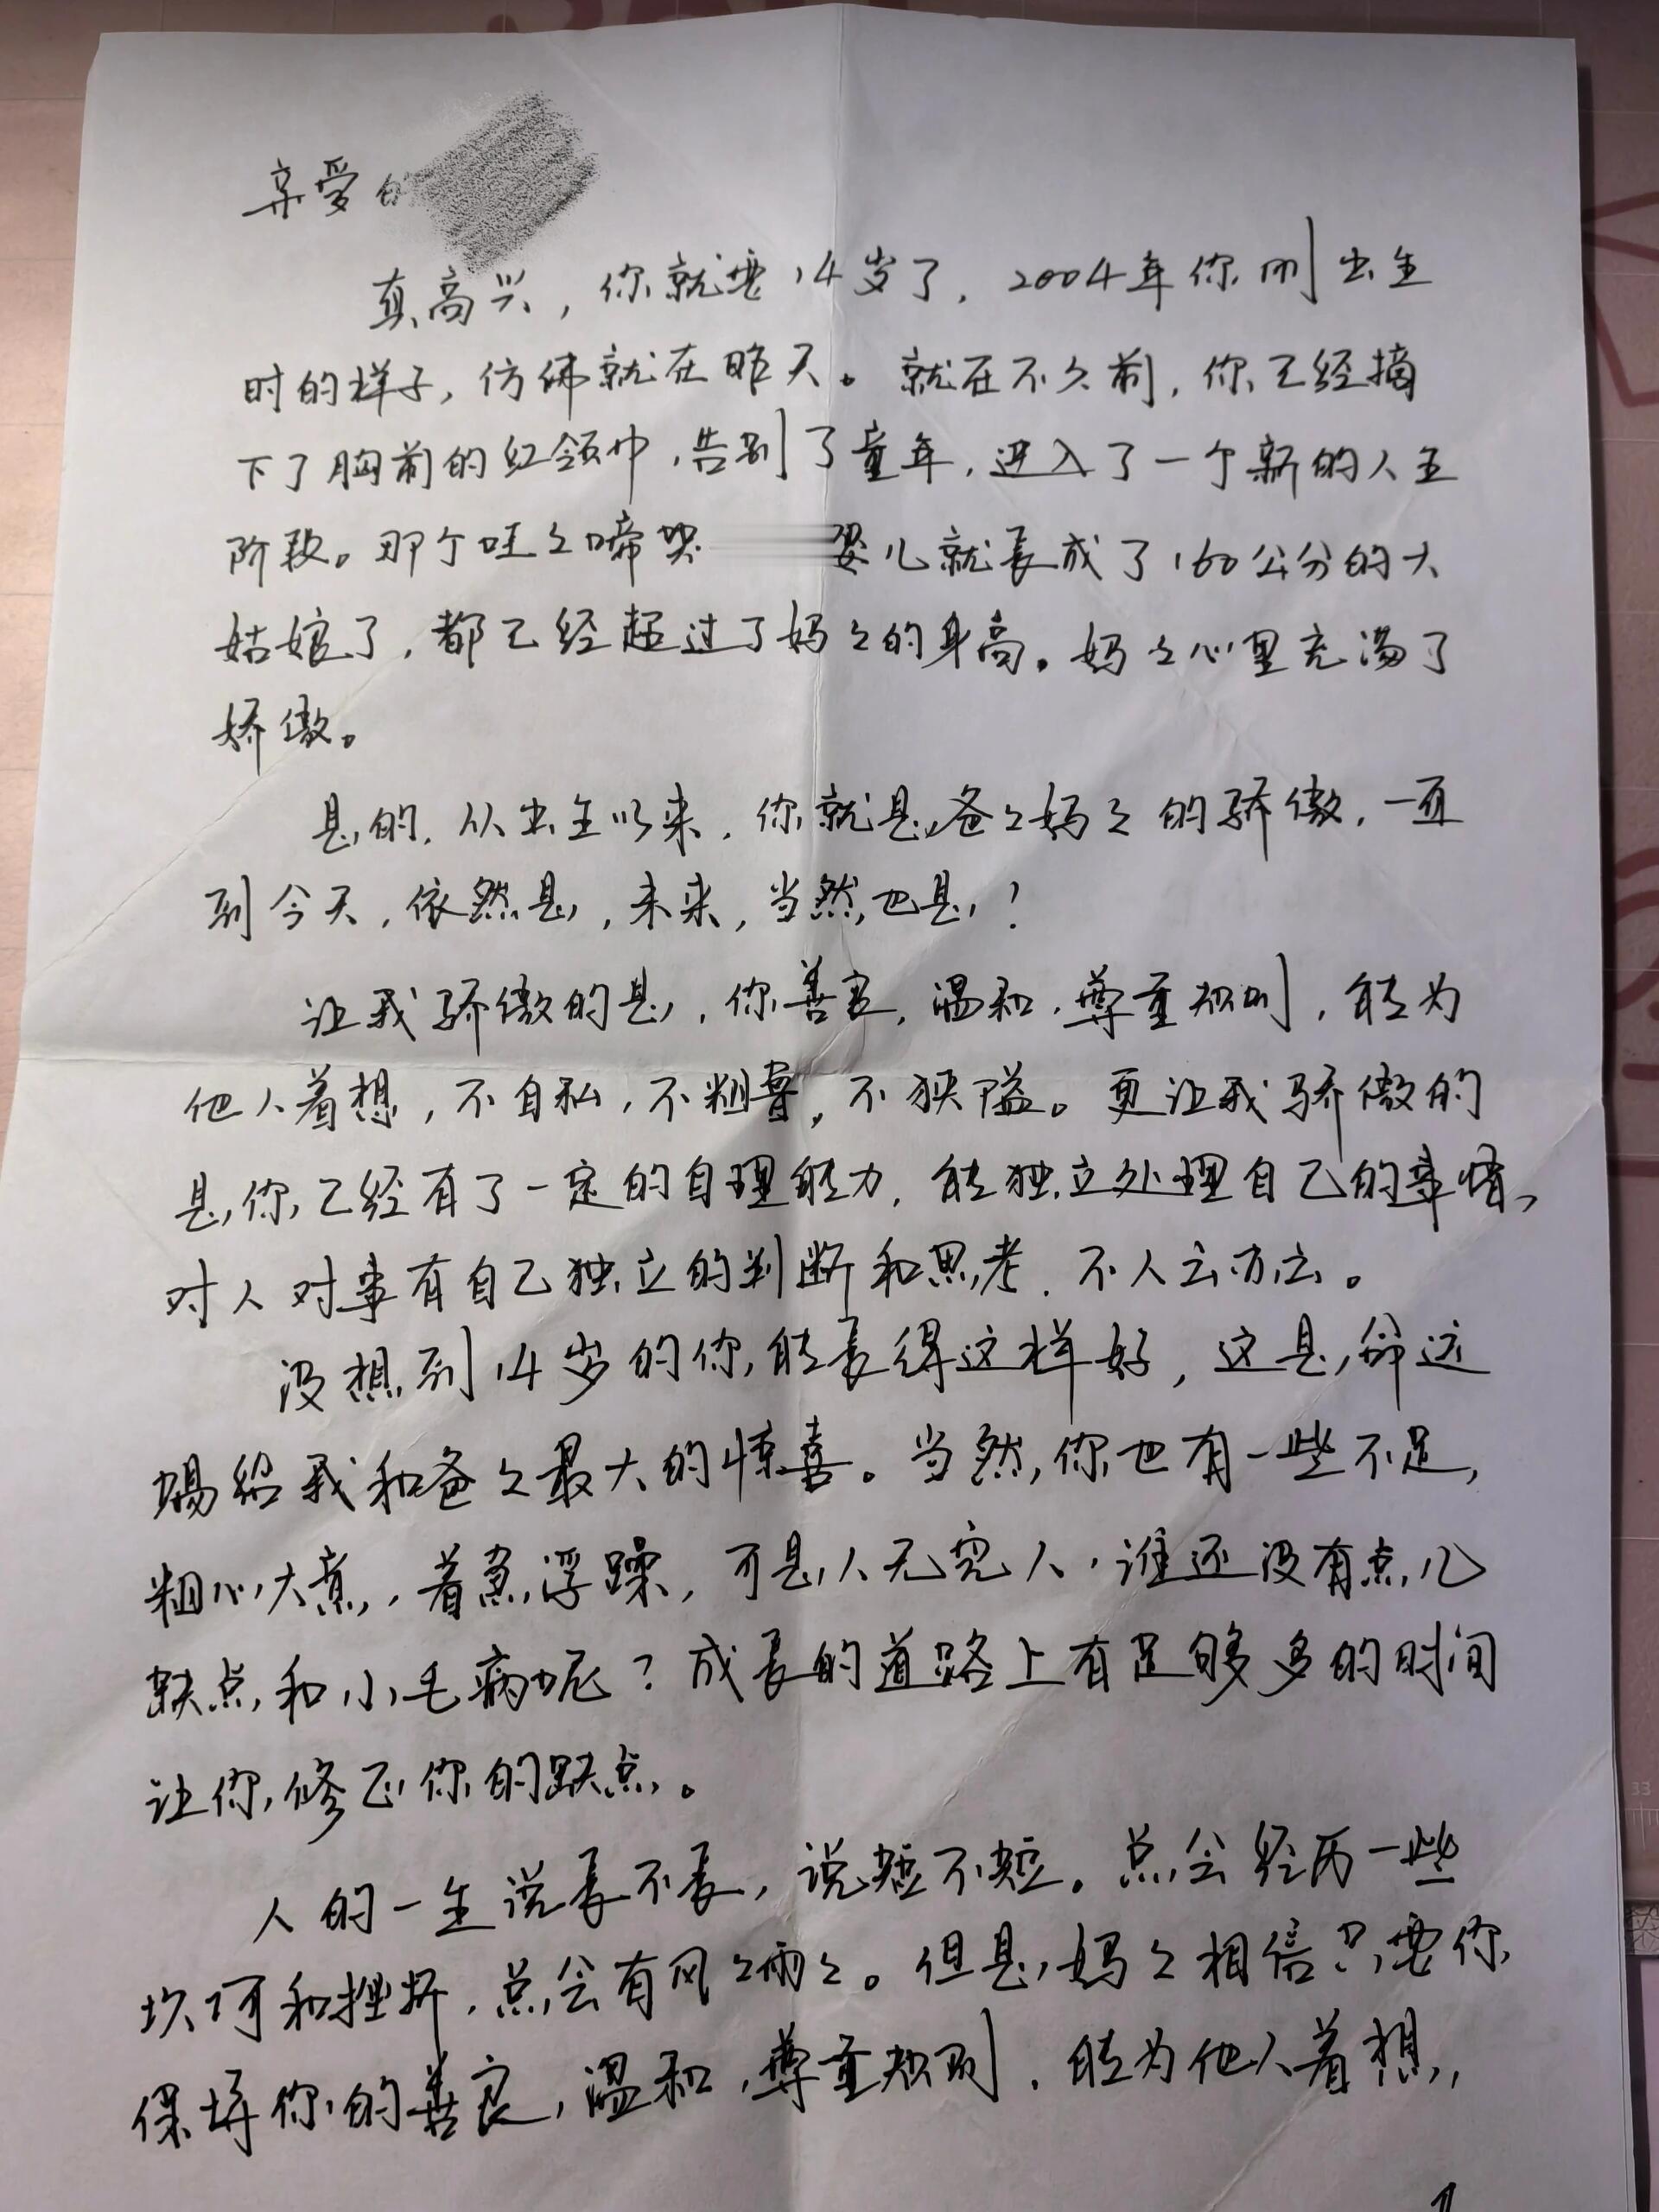 亲爱的
真高兴，你就要14岁了，2004年你刚出生
时的样子，仿佛就在昨天。就在不久前，你已经摘
下了胸前的红领巾，告别了童年，进入了一个新的人生
阶段。那个哇々啼哭 婴儿就长成了160公分的大
姑娘了，都已经超过了妈々的身高。妈々心里充满了
娇傲。
是的，从出生以来，你就是爸々妈々的骄傲，一直
到今天，依然是，未来，当然也是！
让我骄傲的是，你善良，温和，尊重规则，能为
他人着想，不自私，不粗鲁，不狭隘。更让我骄傲的
是，你已经有了一定的自理能力，能独立处理自己的事情，
对人对事有自己独立的判断和思考，不人云亦云。
没想到14岁的你，能长得这样好，这是命运
赐给我和爸々最大的惊喜。当然，你也有一些不足，
粗心大意，着急浮躁，可是人无完人，谁还没有点儿
缺点和小毛病呢？成长的道路上有足够多的时间
让你修正你的缺点。
人的一生说长不长，说短不短。总会经历一些
坎坷和挫折，总会有风々雨々。但是，妈々相信只要你
保持你的善良，温和，尊重规则，能为他人着想，